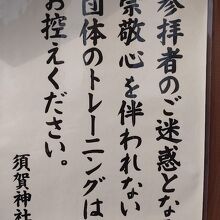 参拝者のご迷惑とな
崇敬心を伴われない
団体のトレーニングは
お控えください。
須賀神社